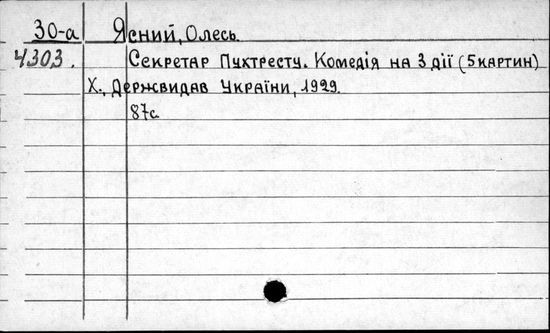 30-а Ясний, Олесь.
4303. Секретар Пухтресту. Комедія на 3 дії (5 картин)
Х., Держвидав України, 1929.
87с.